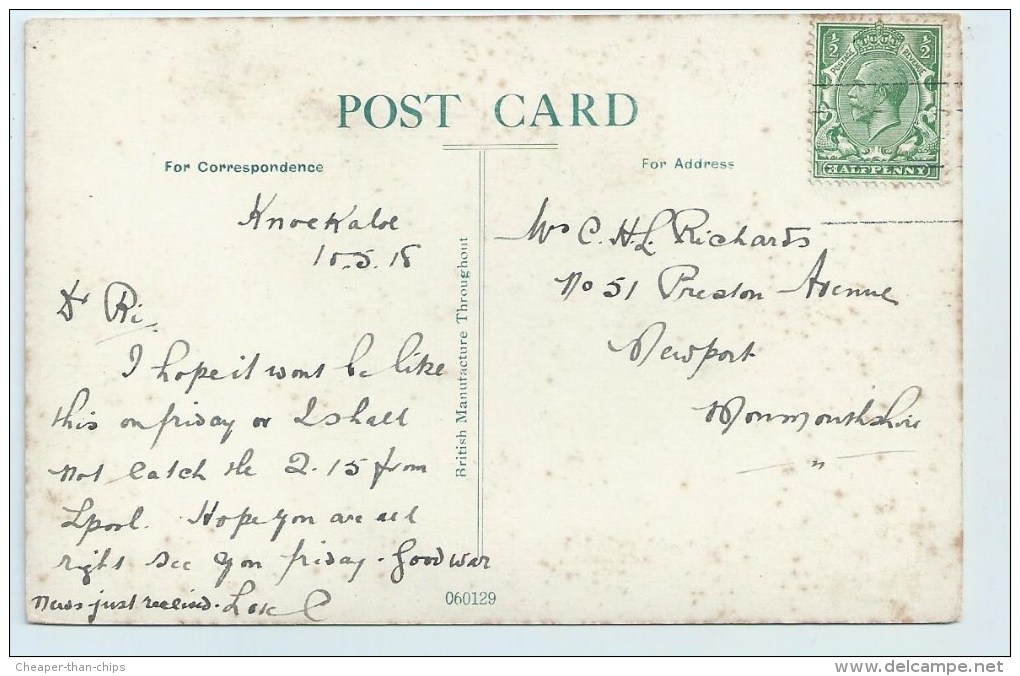 POST CARD
½ ½
POSTAGE REVENUE
HALFPENNY
For Correspondence
Knockaloe
10.5.18
Dr Ri,
I hope it wont be like
this on friday or I shall
not catch the 2.15 from
Lpool. Hope you are all
right see you friday. Good war
news just received. Love C
British Manufacture Throughout
060129
For Address
Mrs C. H. L. Richards
No 51 Preston Avenue
Newport
Monmouthshire
Cheaper-than-chips
www.delcampe.net